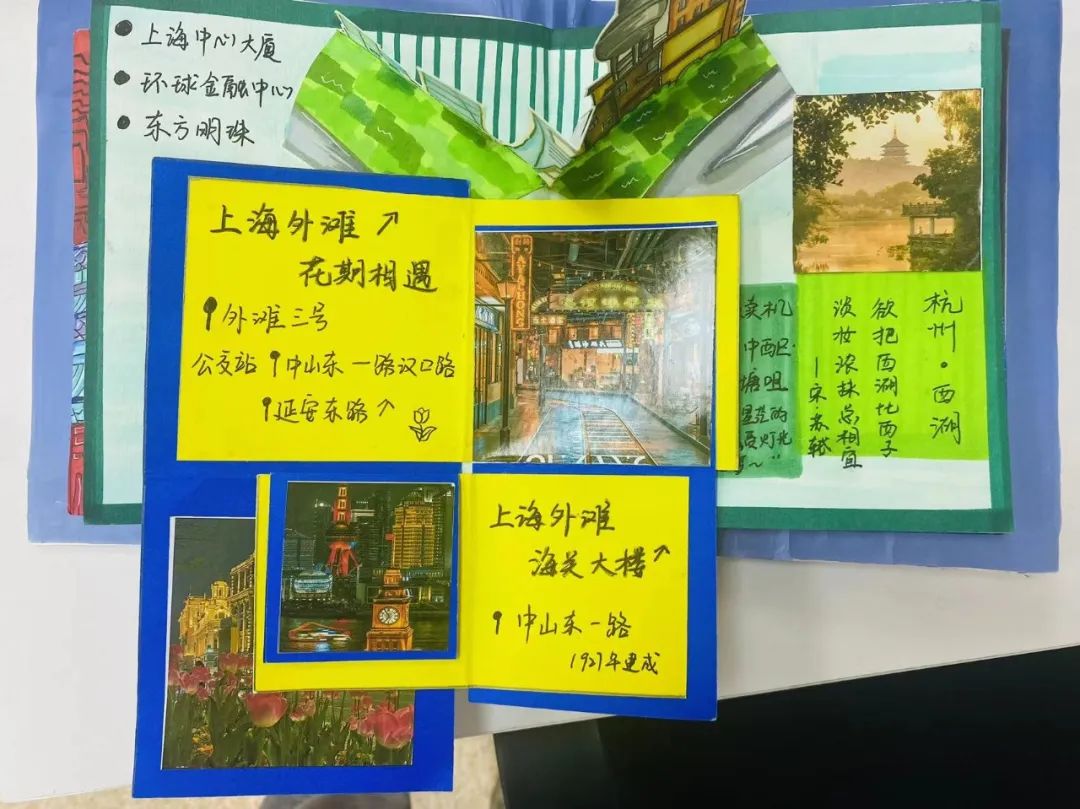 上海中心大厦
环球金融中心
东方明珠
上海外滩↗
花期相遇
外滩三号
公交站 中山东一路汉口路
延安东路↗
卖机
中西区·
塘咀
的
灯光
～”
杭州·西湖
欲把西湖比西子
淡妆浓抹总相宜
—宋·苏轼
上海外滩
海关大楼↗
中山东一路
1927年建成